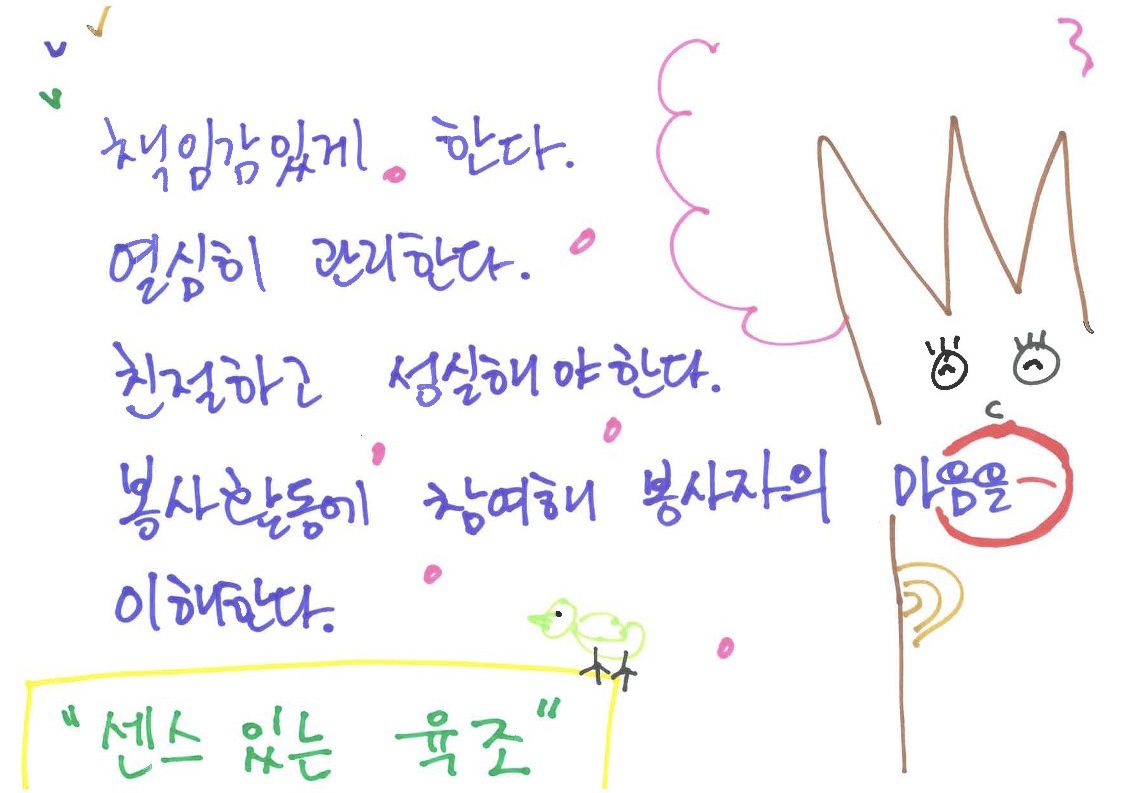 책임감있게 한다.
열심히 관리한다.
친절하고 성실해야한다.
봉사활동에 참여해 봉사자의 마음을
이해한다.
"센스 있는 육조"